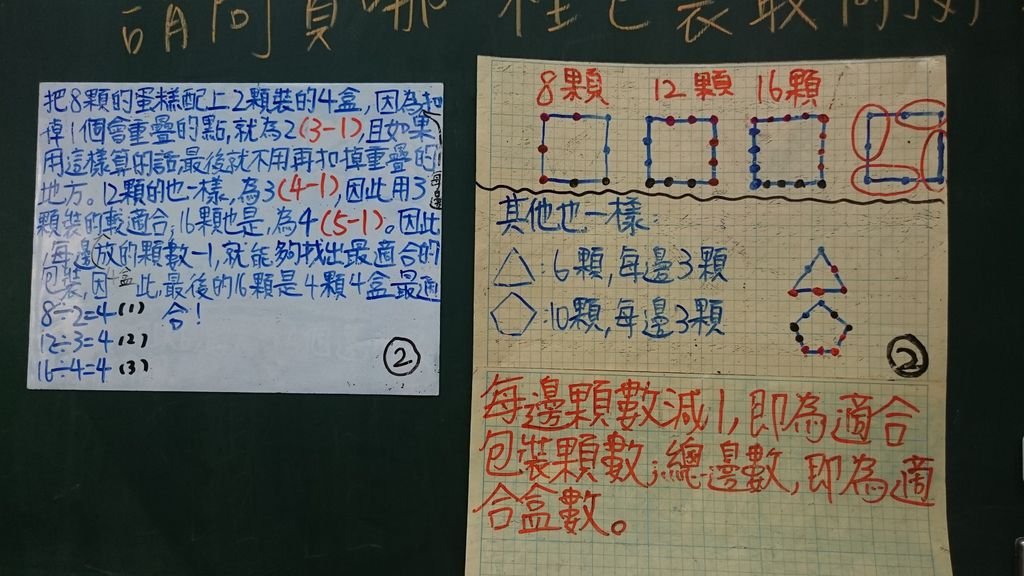 請問買哪 種包裝最
把8顆的蛋糕配上2顆裝的4盒,因為扣
掉1個會重疊的點,就為2(3-1),且如果
用這樣算的話,最後就不用再扣掉重疊的
地方。12顆的也一樣,為3(4-1),因此用3
顆裝的較適合;16顆也是,為4(5-1)。因此
每邊
每邊放的顆數-1,就能夠找出最適合的
包裝,因此,最後的16顆是4顆4盒最適
4盒
合!
8÷2=4(1)
12÷3=4(2)
16÷4=4(3)
2
8顆 12顆 16顆
其他也一樣:
:6顆,每邊3顆
:10顆,每邊3顆
2
每邊顆數減1,即為適合
包裝顆數;總邊數,即為適
合盒數。